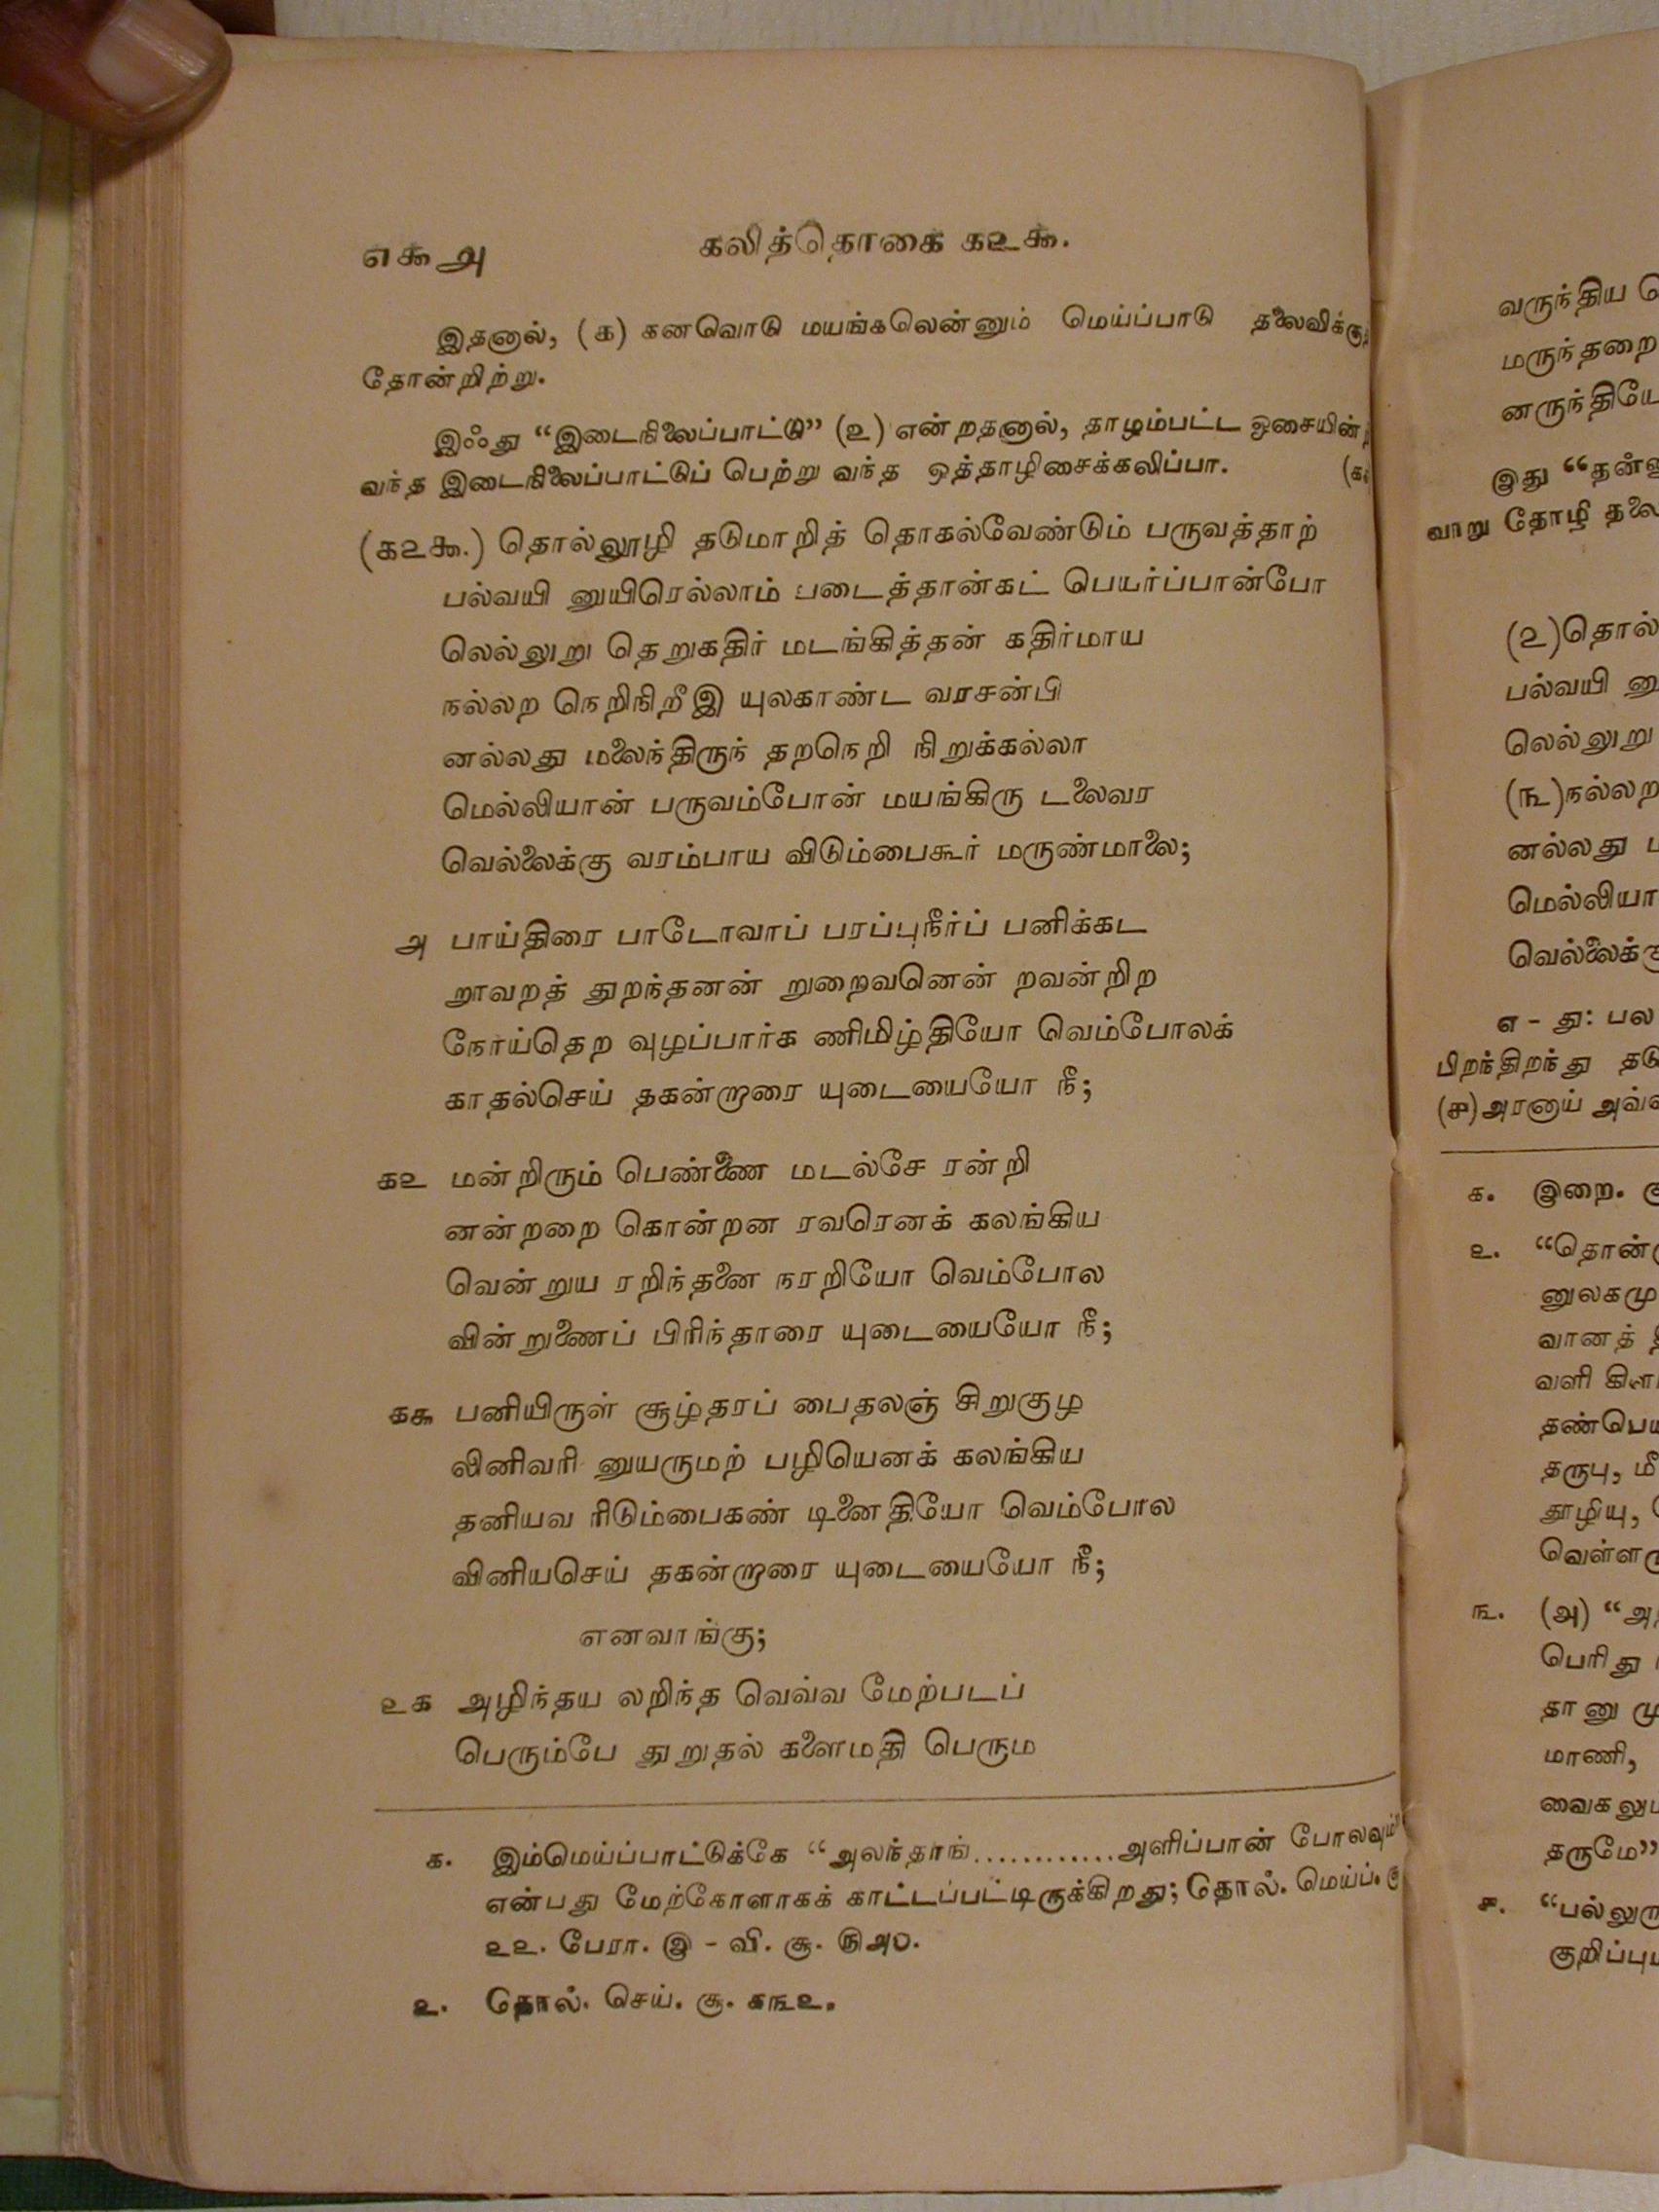 எ௯அ
கலித்தொகை க௨௯.
இதனால், (க) கனவொடு மயங்கலென்னும் மெய்ப்பாடு தலைவிக்குத்
தோன்றிற்று.
இஃது “இடைநிலைப்பாட்டு” (௨) என்றதனால், தாழம்பட்ட ஓசையின்
வந்த இடைநிலைப்பாட்டுப் பெற்று வந்த ஒத்தாழிசைக்கலிப்பா.
(க௨௯.) தொல்லூழி தடுமாறித் தொகல்வேண்டும் பருவத்தாற்
பல்வயி னுயிரெல்லாம் படைத்தான்கட் பெயர்ப்பான்போ
லெல்லுறு தெறுகதிர் மடங்கித்தன் கதிர்மாய
நல்லற நெறிநிறீஇ யுலகாண்ட வரசன்பி
னல்லது மலைந்திருந் தறநெறி நிறுக்கல்லா
மெல்லியான் பருவம்போன் மயங்கிரு டலைவர
வெல்லைக்கு வரம்பாய விடும்பைகூர் மருண்மாலை;
அ பாய்திரை பாடோவாப் பரப்புநீர்ப் பனிக்கட
றூவறத் துறந்தனன் றுறைவனென் றவன்றிற
நோய்தெற வுழப்பார்க ணிமிழ்தியோ வெம்போலக்
காதல்செய் தகன்றாரை யுடையையோ நீ;
க௨ மன்றிரும் பெண்ணை மடல்சே ரன்றி
னன்றறை கொன்றன ரவரெனக் கலங்கிய
வென்றுய ரறிந்தனை நரறியோ வெம்போல
வின்றுணைப் பிரிந்தாரை யுடையையோ நீ;
க௬ பனியிருள் சூழ்தரப் பைதலஞ் சிறுகுழ
லினிவரி னுயருமற் பழியெனக் கலங்கிய
தனியவ ரிடும்பைகண் டினைதியோ வெம்போல
வினியசெய் தகன்றாரை யுடையையோ நீ;
எனவாங்கு;
௨க அழிந்தய லறிந்த வெவ்வ மேற்படப்
பெரும்பே துறுதல் களைமதி பெரும
க. இம்மெய்ப்பாட்டுக்கே “அலந்தாங்............அளிப்பான் போலவும்
என்பது மேற்கோளாகக் காட்டப்பட்டிருக்கிறது; தொல். மெய்ப். சூ
௨௨. பேரா. இ - வி. சூ. ௫அ௦.
௨. தொல். செய். சூ. க௩௨.
வருந்திய
மருந்தறை
னருந்தியே
இது
வாறு தோழி
(௨)தொல்
பல்வயி
லெல்லுறு
(௩)நல்லற
னல்லது
மெல்லியா
வெல்லைக்கு
எ - து: பல
பிறந்திறந்து
(௪)அரனாய்
க. இறை.
௨.
னுலகமு
வானத்
வளி
தருபு,
தூழியு,
௩. (அ)
பெரிது
மாணி,
தருமே”
௪.